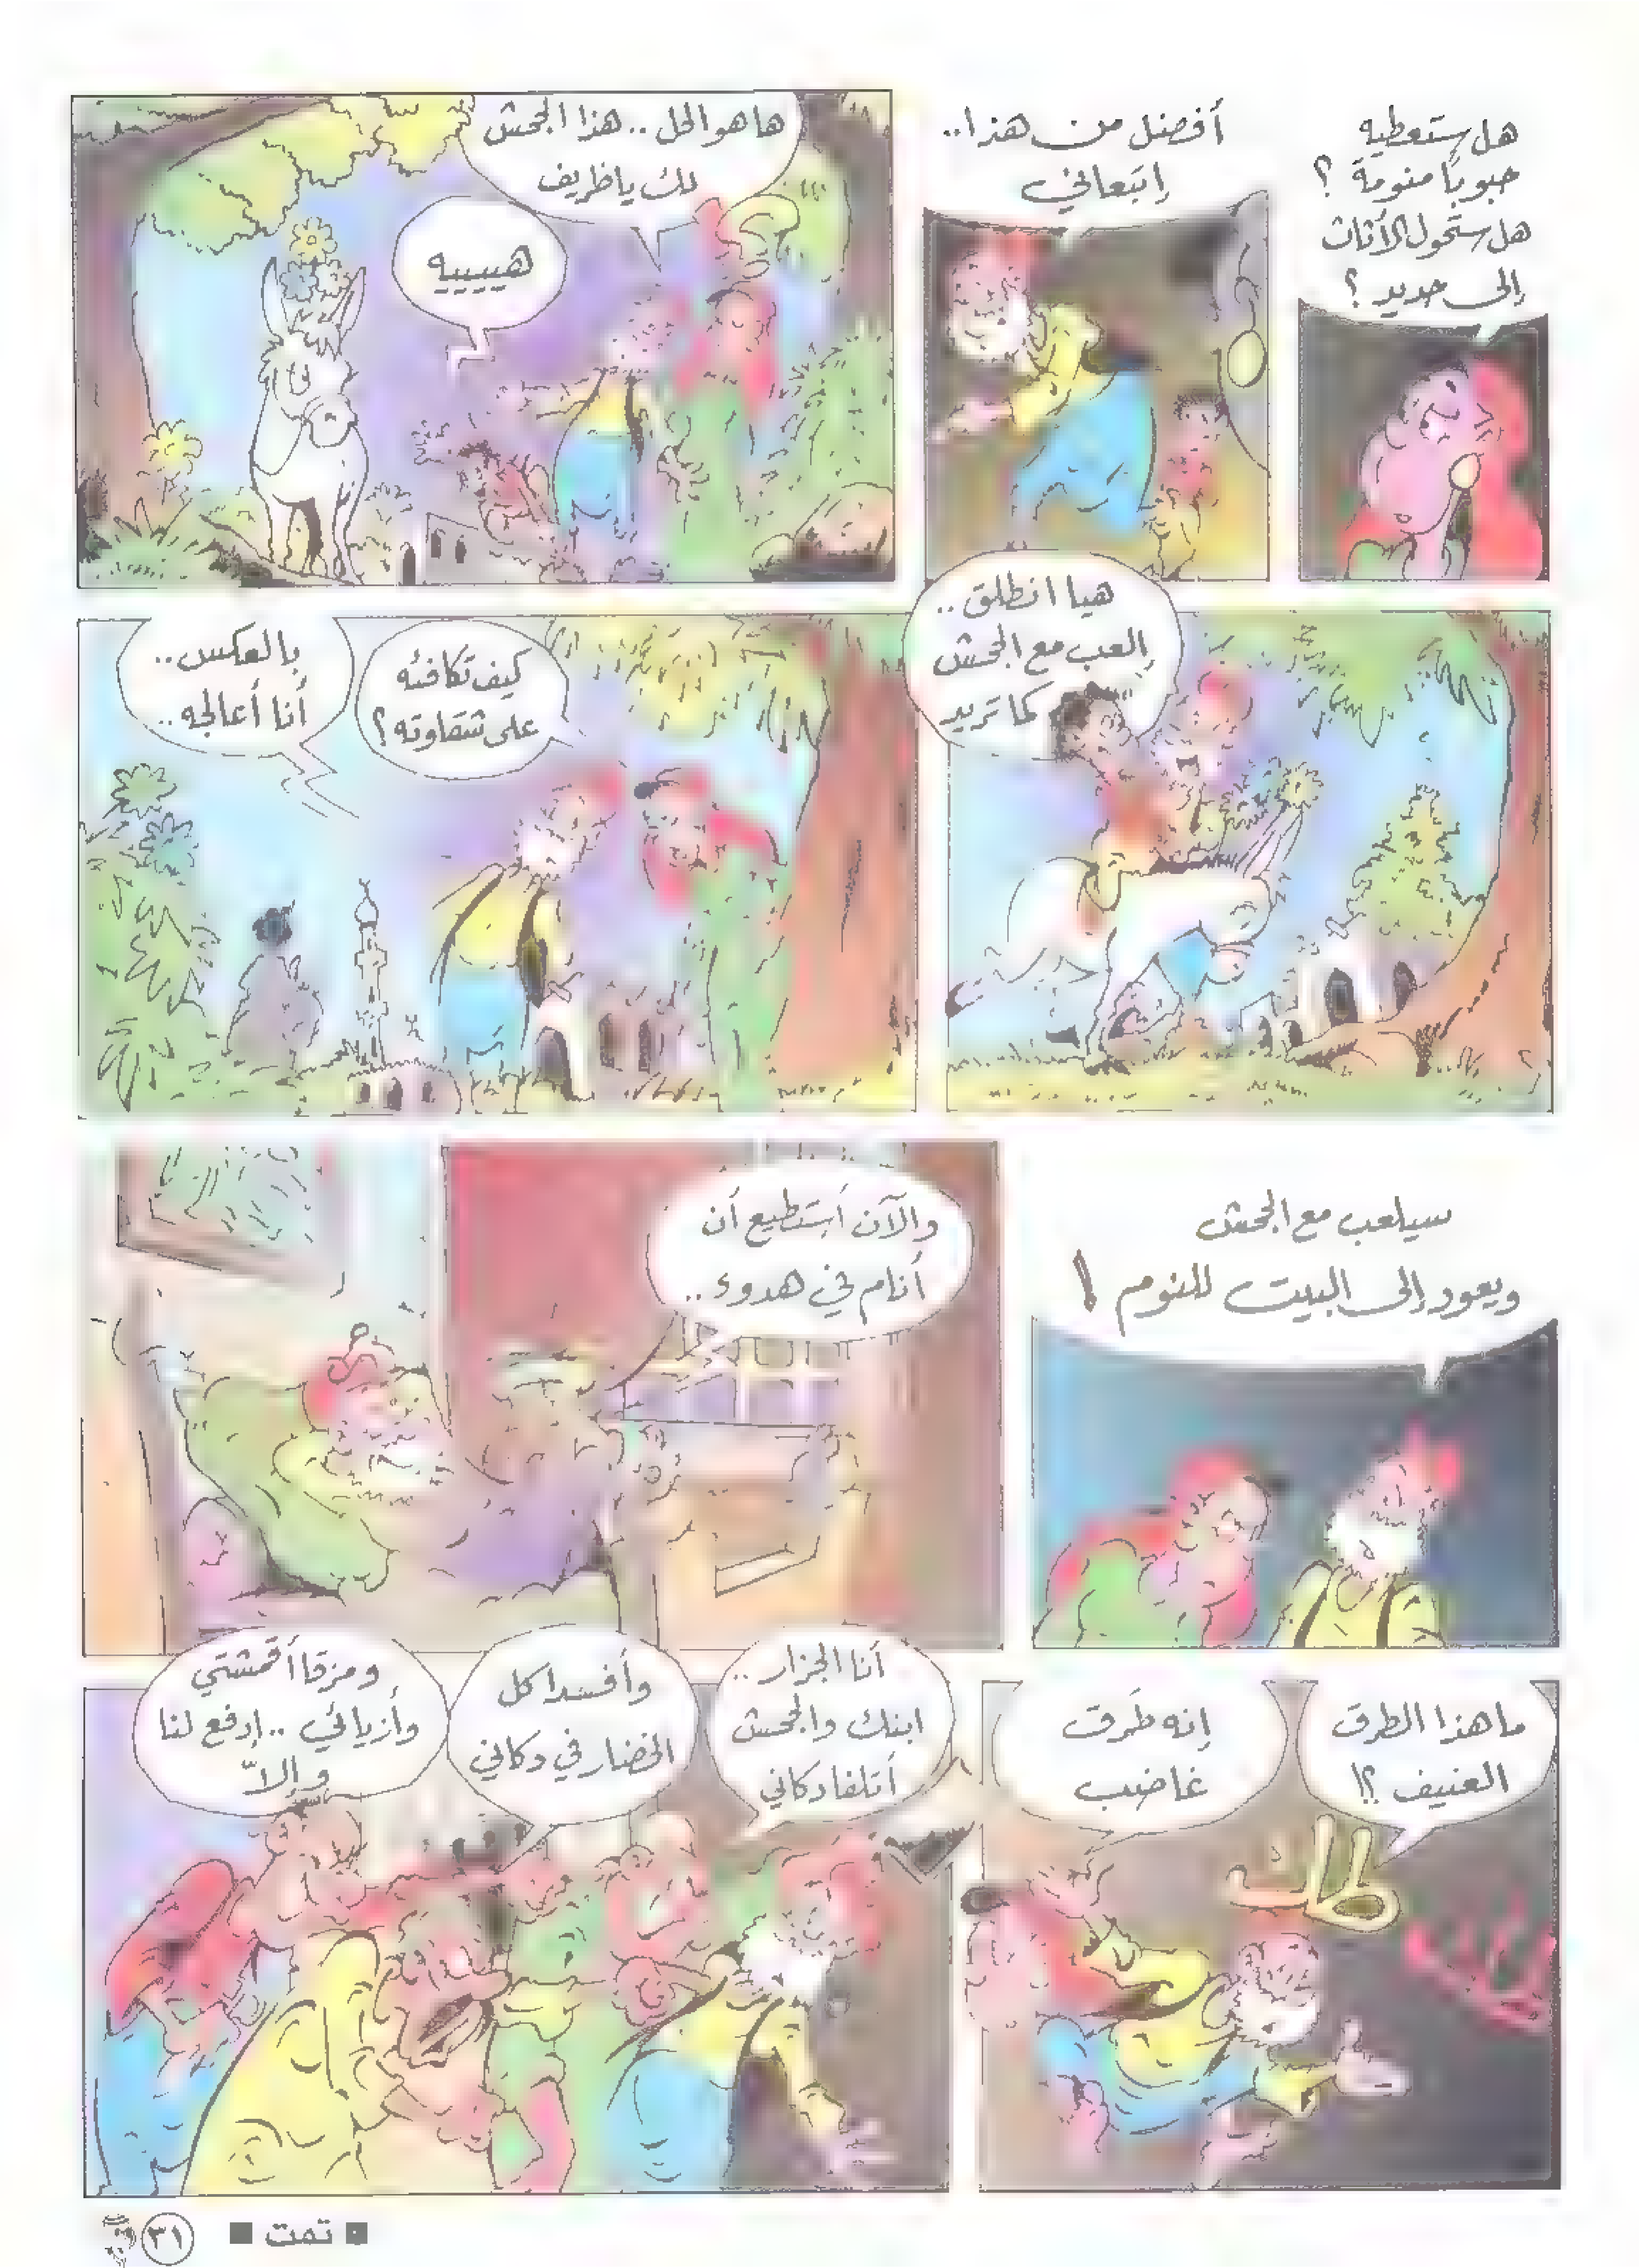 هل ستعطيه
حبوبًا منومة ؟
هل ستحول الأثاث
إلى حديد ؟
أفضل من هذا..
إتبعاني
ها هو الحل .. هذا الجحش
لك يا ظريف
هيييييه
هيا انطلق ..
إلعب مع الجحش
كما تريد
كيف تكافئه
على شقاوته ؟
بالعكس ..
أنا أعالجه ..
سيلعب مع الجحش
ويعود إلى البيت للنوم !
والآن أستطيع أن
أنام في هدوء ..
ما هذا الطرق
العنيف ؟!
إنه طَرق
غاضب
طاخ
أنا الجزار ..
ابنك والجحش
أتلفا دكاني
وأفسدا كل
الخضار في دكاني
ومزقا أقمشتي
وأزيائي .. إدفع لنا
وإلاّ
تمت
٣١